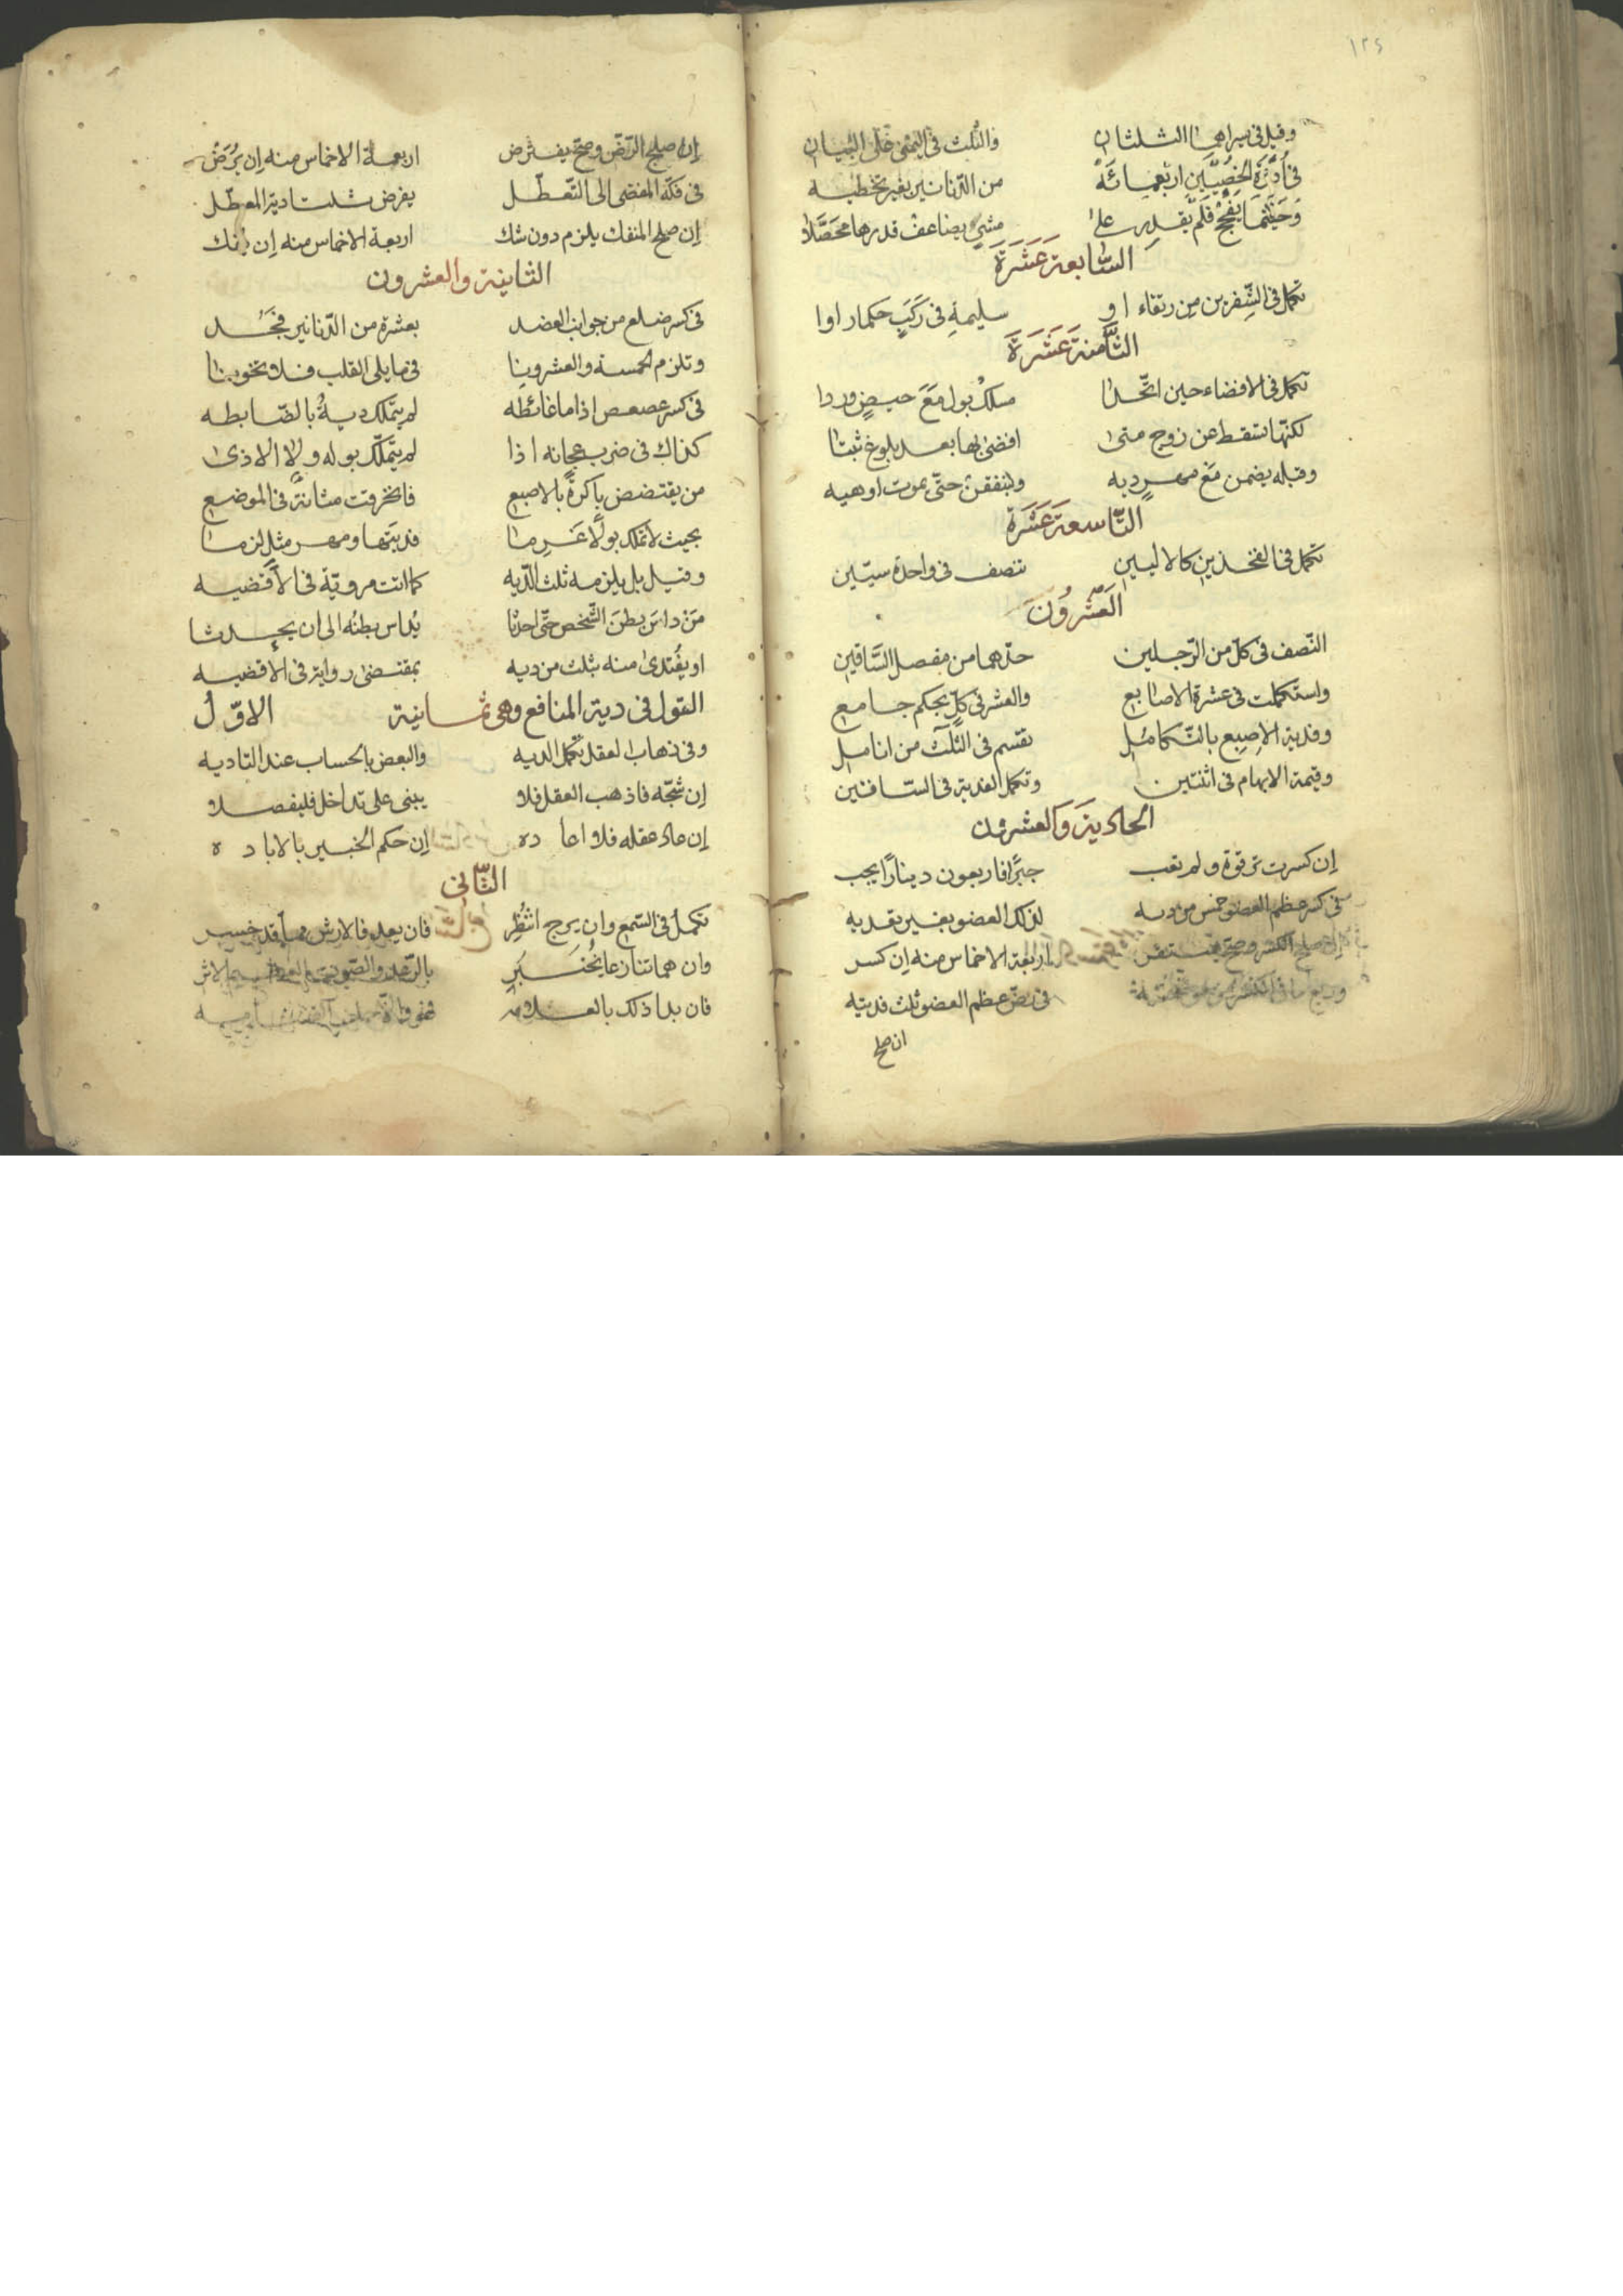 ١٢٤
وقيل في يسراهما الثلثان والثلث في اليمنى خلى البيان
في أُدْرَة الخصيين اربعمائة من الدنانير بغير تخطيه
وحيثما يفجج فلم يقدر على مشي يضاعف قدرها محصلا
السابعة عشرة
تكمل في الشفرين من رتقاء او سليمة في ركب حكما راوا
الثامنة عشرة
تكمل في الافضاء حين اتحدا مسلك بول مع حيض وردا
لكنها تسقط عن زوج متى افضى بها بعد بلوغ ثبتا
وقبله يضمن مع مهر ديه ولينفقن حتى يموت او هيه
التاسعة عشرة
تكمل في الفخذين كالاليين تنصف في واحدة سيين
العشرون
النصف في كل من الرجلين حدهما من مفصل الساقين
واستكملت في عشرة الاصابع والعشر في كل بحكم جامع
وفدية الاصبع بالتكامل تقسم في الثلث من انامل
وقيمة الابهام في اثنتين وتكمل الفدية في الساقين
الحادية والعشرون
إن كسرت ترقوة ولم تعب جبرا فاربعون دينارا يجب
في كسر عظم العضو خمس من ديه لذلك العضو بغير تعديه
إن صلح الكسر وصح اربعة الاخماس منه إن كسر
في رض عظم العضو ثلث فديته
ان صلح
إن صلح الرض وصح يفترض اربعة الاخماس منه إن يرض
في فكه المفضى الى التعطل يفرض ثلثا دية المعطل
إن صلح المنفك يلزم دون شك اربعة الاخماس منه إن يفك
الثانية والعشرون
في كسر ضلع من جوانب العضد بعشرة من الدنانير فجد
وتلزم الخمسة والعشرونا في ما يلي القلب فلا تخونا
في كسر عصعص اذا ما غائطه لم يتملك دية بالضابطه
كذاك في ضرب عجانه اذا لم يتملك بوله ولا الاذى
من يقتضض باكرة بالاصبع فانخرقت مثانة في الموضع
بحيث لا تملك بولا غرما فديتها ومهر مثل لزما
وقيل بل يلزمه ثلث الديه كما اتت مروية في الاقضيه
من داس بطن الشخص حتى احدثا يداس بطنه الى ان يحدثا
او يفتدى منه بثلث من ديه بمقتضى رواية في الاقضيه
القول في دية المنافع وهي ثمانية الاول
وفي ذهاب العقل تكمل الديه والبعض بالحساب عند التاديه
إن شجه فاذهب العقل فلا يبنى على تداخل فليفصلا
إن عاد عقله فلا اعاده إن حكم الخبير بالاباده
الثاني
تكمل في السمع وان يرج انتظر فان يعد فالارش مما قد خسر
وان هما تنازعا يختبر بالرعد والصوت العظيم الاثر
فان بدا ذلك بالعلامه